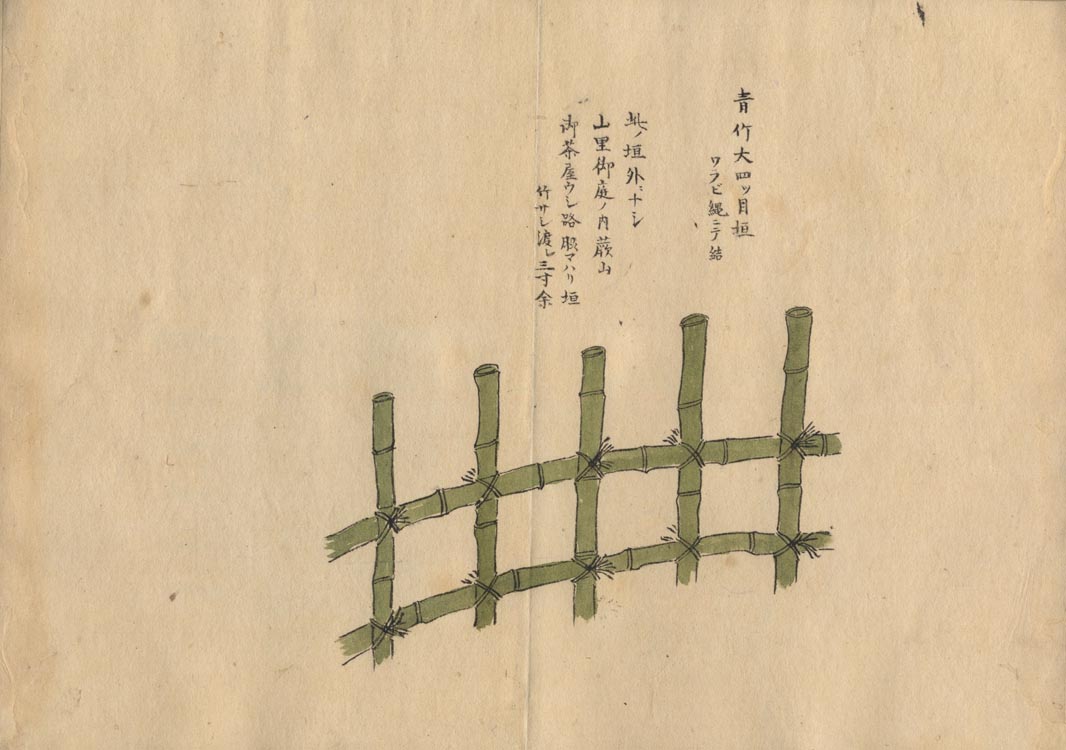 青竹大四ッ目垣
ワラビ縄ニテ結
此ノ垣外ニナシ
山里御庭ノ内蕨山
御茶屋ウシ路腰マハリ垣
竹サシ渡シ三寸余